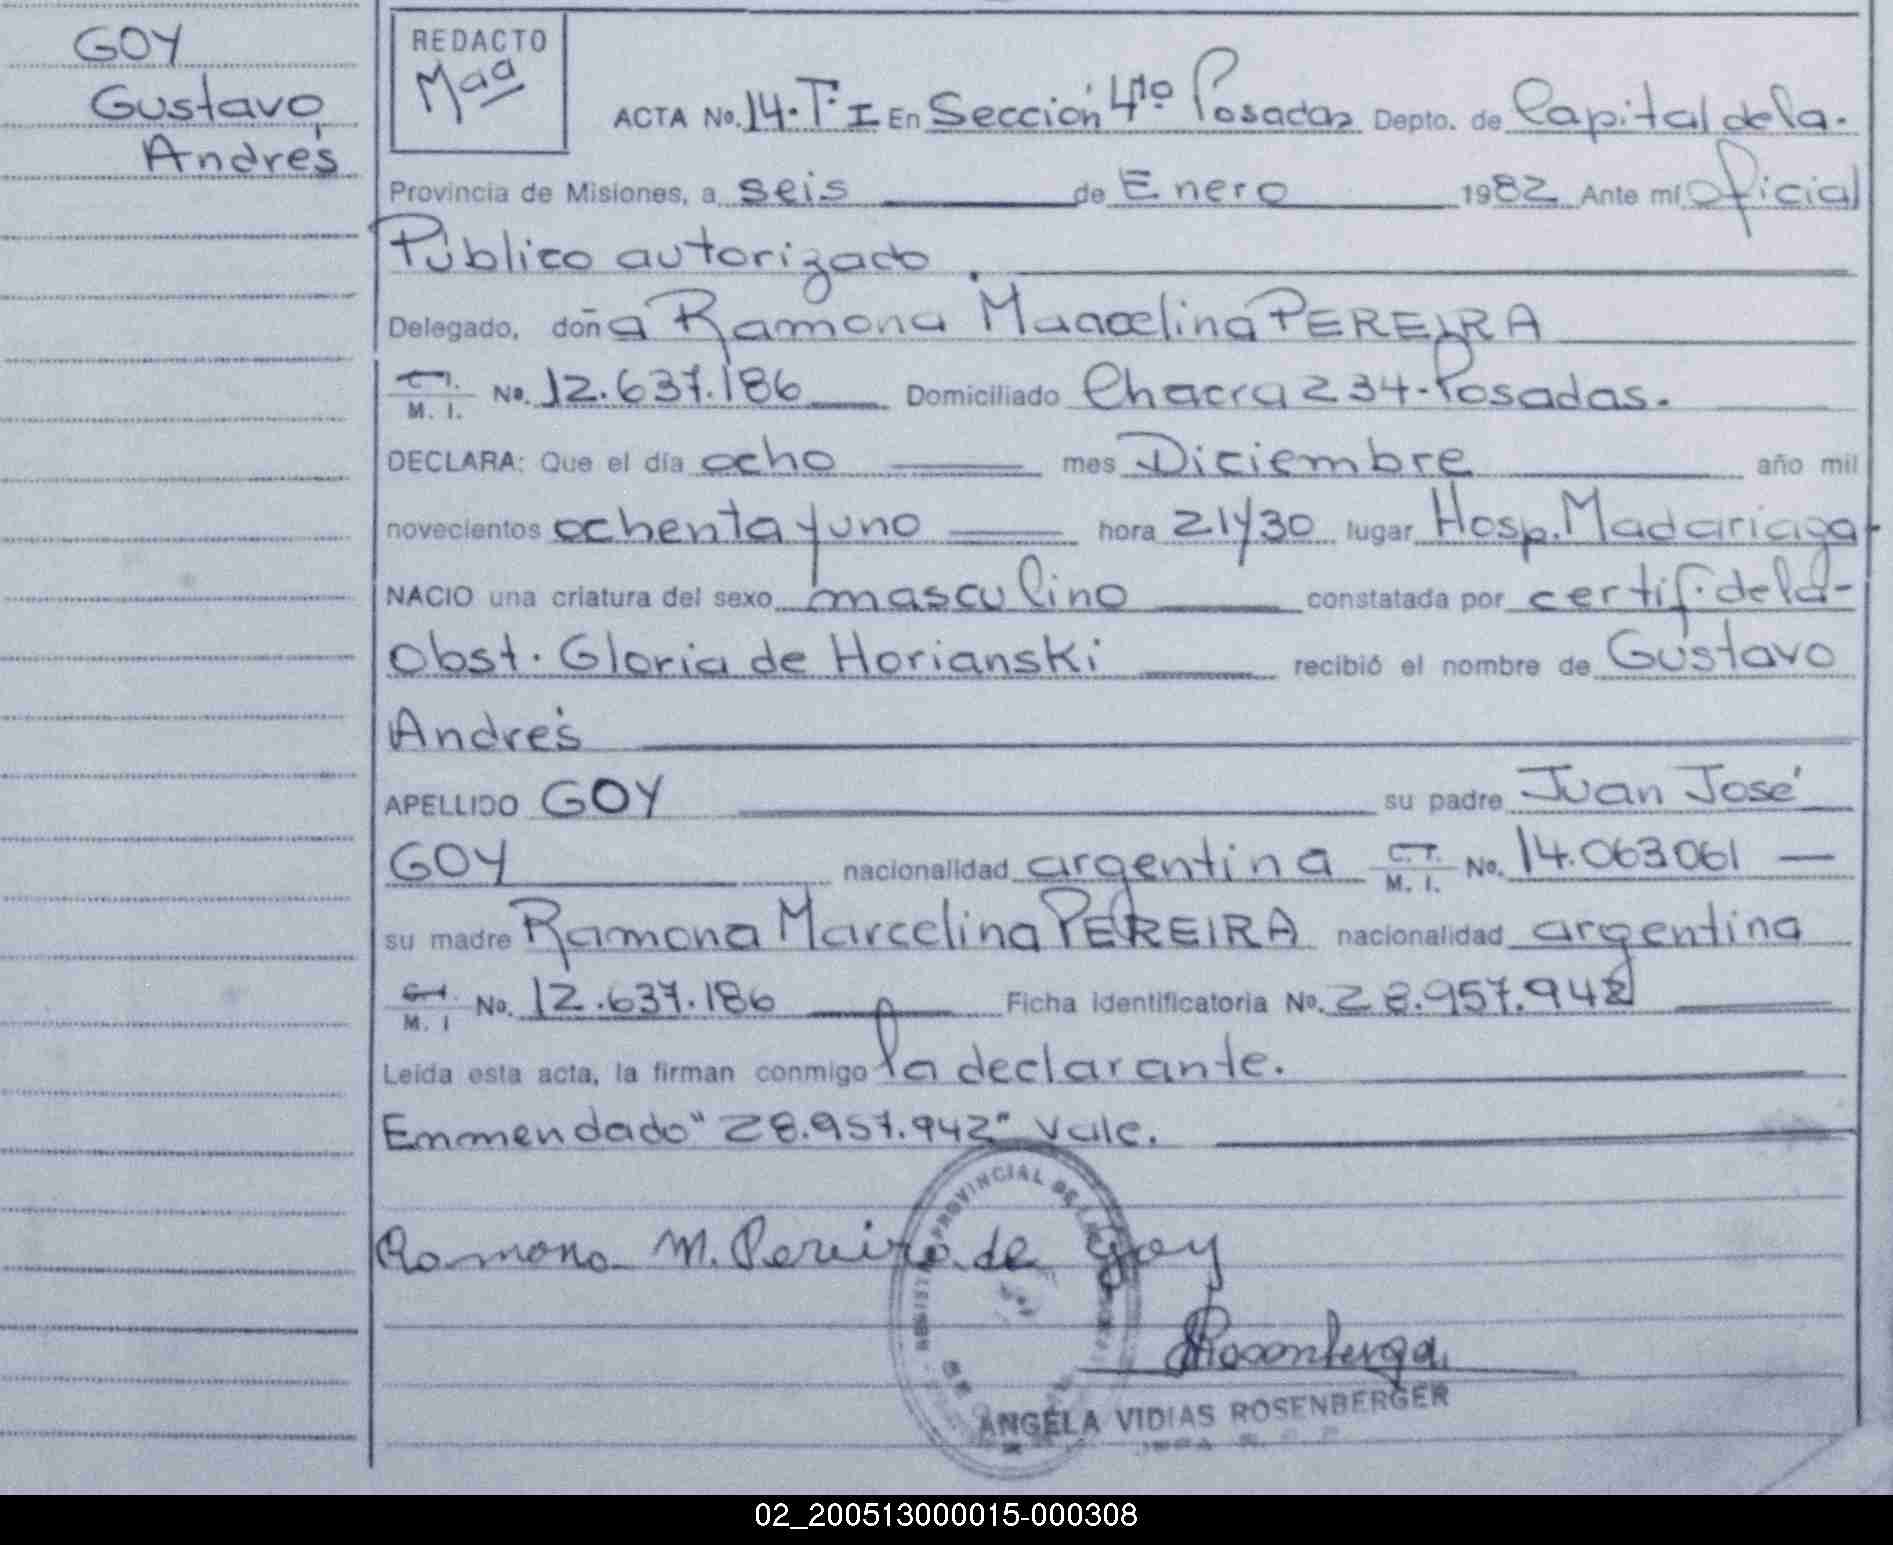 GOY
Gustavo
Andrés
REDACTO
ACTA No. 14.T.I En Sección 4ta Posadas Depto. de Capital de la.
Provincia de Misiones, a seis de Enero 1982 Ante mí Oficial
Público autorizado.
Delegado, doña Ramona Marcelina PEREIRA
C.I.
M. I. No. 12.637.186 Domiciliado Chacra 234-Posadas.
DECLARA: Que el día ocho mes Diciembre año mil
novecientos ochenta y uno hora 21y30 lugar Hosp. Madariaga-
NACIO una criatura del sexo masculino constatada por certif. de la-
Obst. Gloria de Horianski recibió el nombre de Gustavo
Andrés
APELLIDO GOY su padre Juan José
GOY nacionalidad argentina C.I.
M. I. No. 14.063061 —
su madre Ramona Marcelina PEREIRA nacionalidad argentina
C.I.
M. I No. 12.637.186 Ficha identificatoria No. 28.957.942
Leída esta acta, la firman conmigo la declarante.
Enmendado "28.957.942" vale.
PROVINCIAL DE
Ramona M. Pereira de Goy
ANGELA VIDIAS ROSENBERGER
02_200513000015-000308